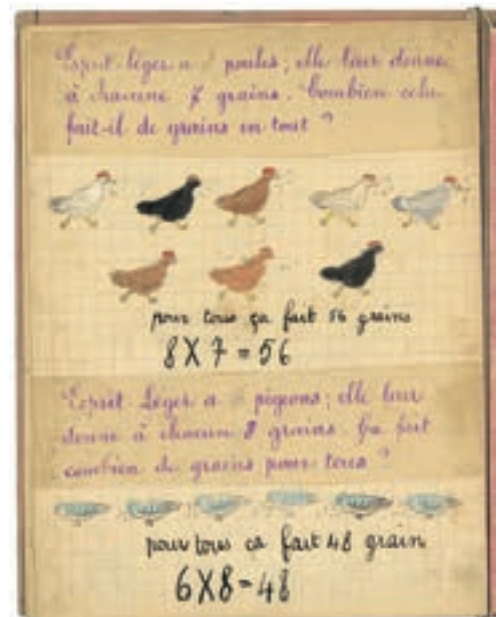 Esprit-léger a 8 poules; elle leur donne
à chacune 7 grains. Combien cela
fait-il de grains en tout ?
pour tous ça fait 56 grains
8 X 7 = 56
Esprit Léger a pigeons; elle leur
donne à chacun 8 grains. Ça fait
combien de grains pour tous ?
pour tous ca fait 48 grain
6 X 8 = 48